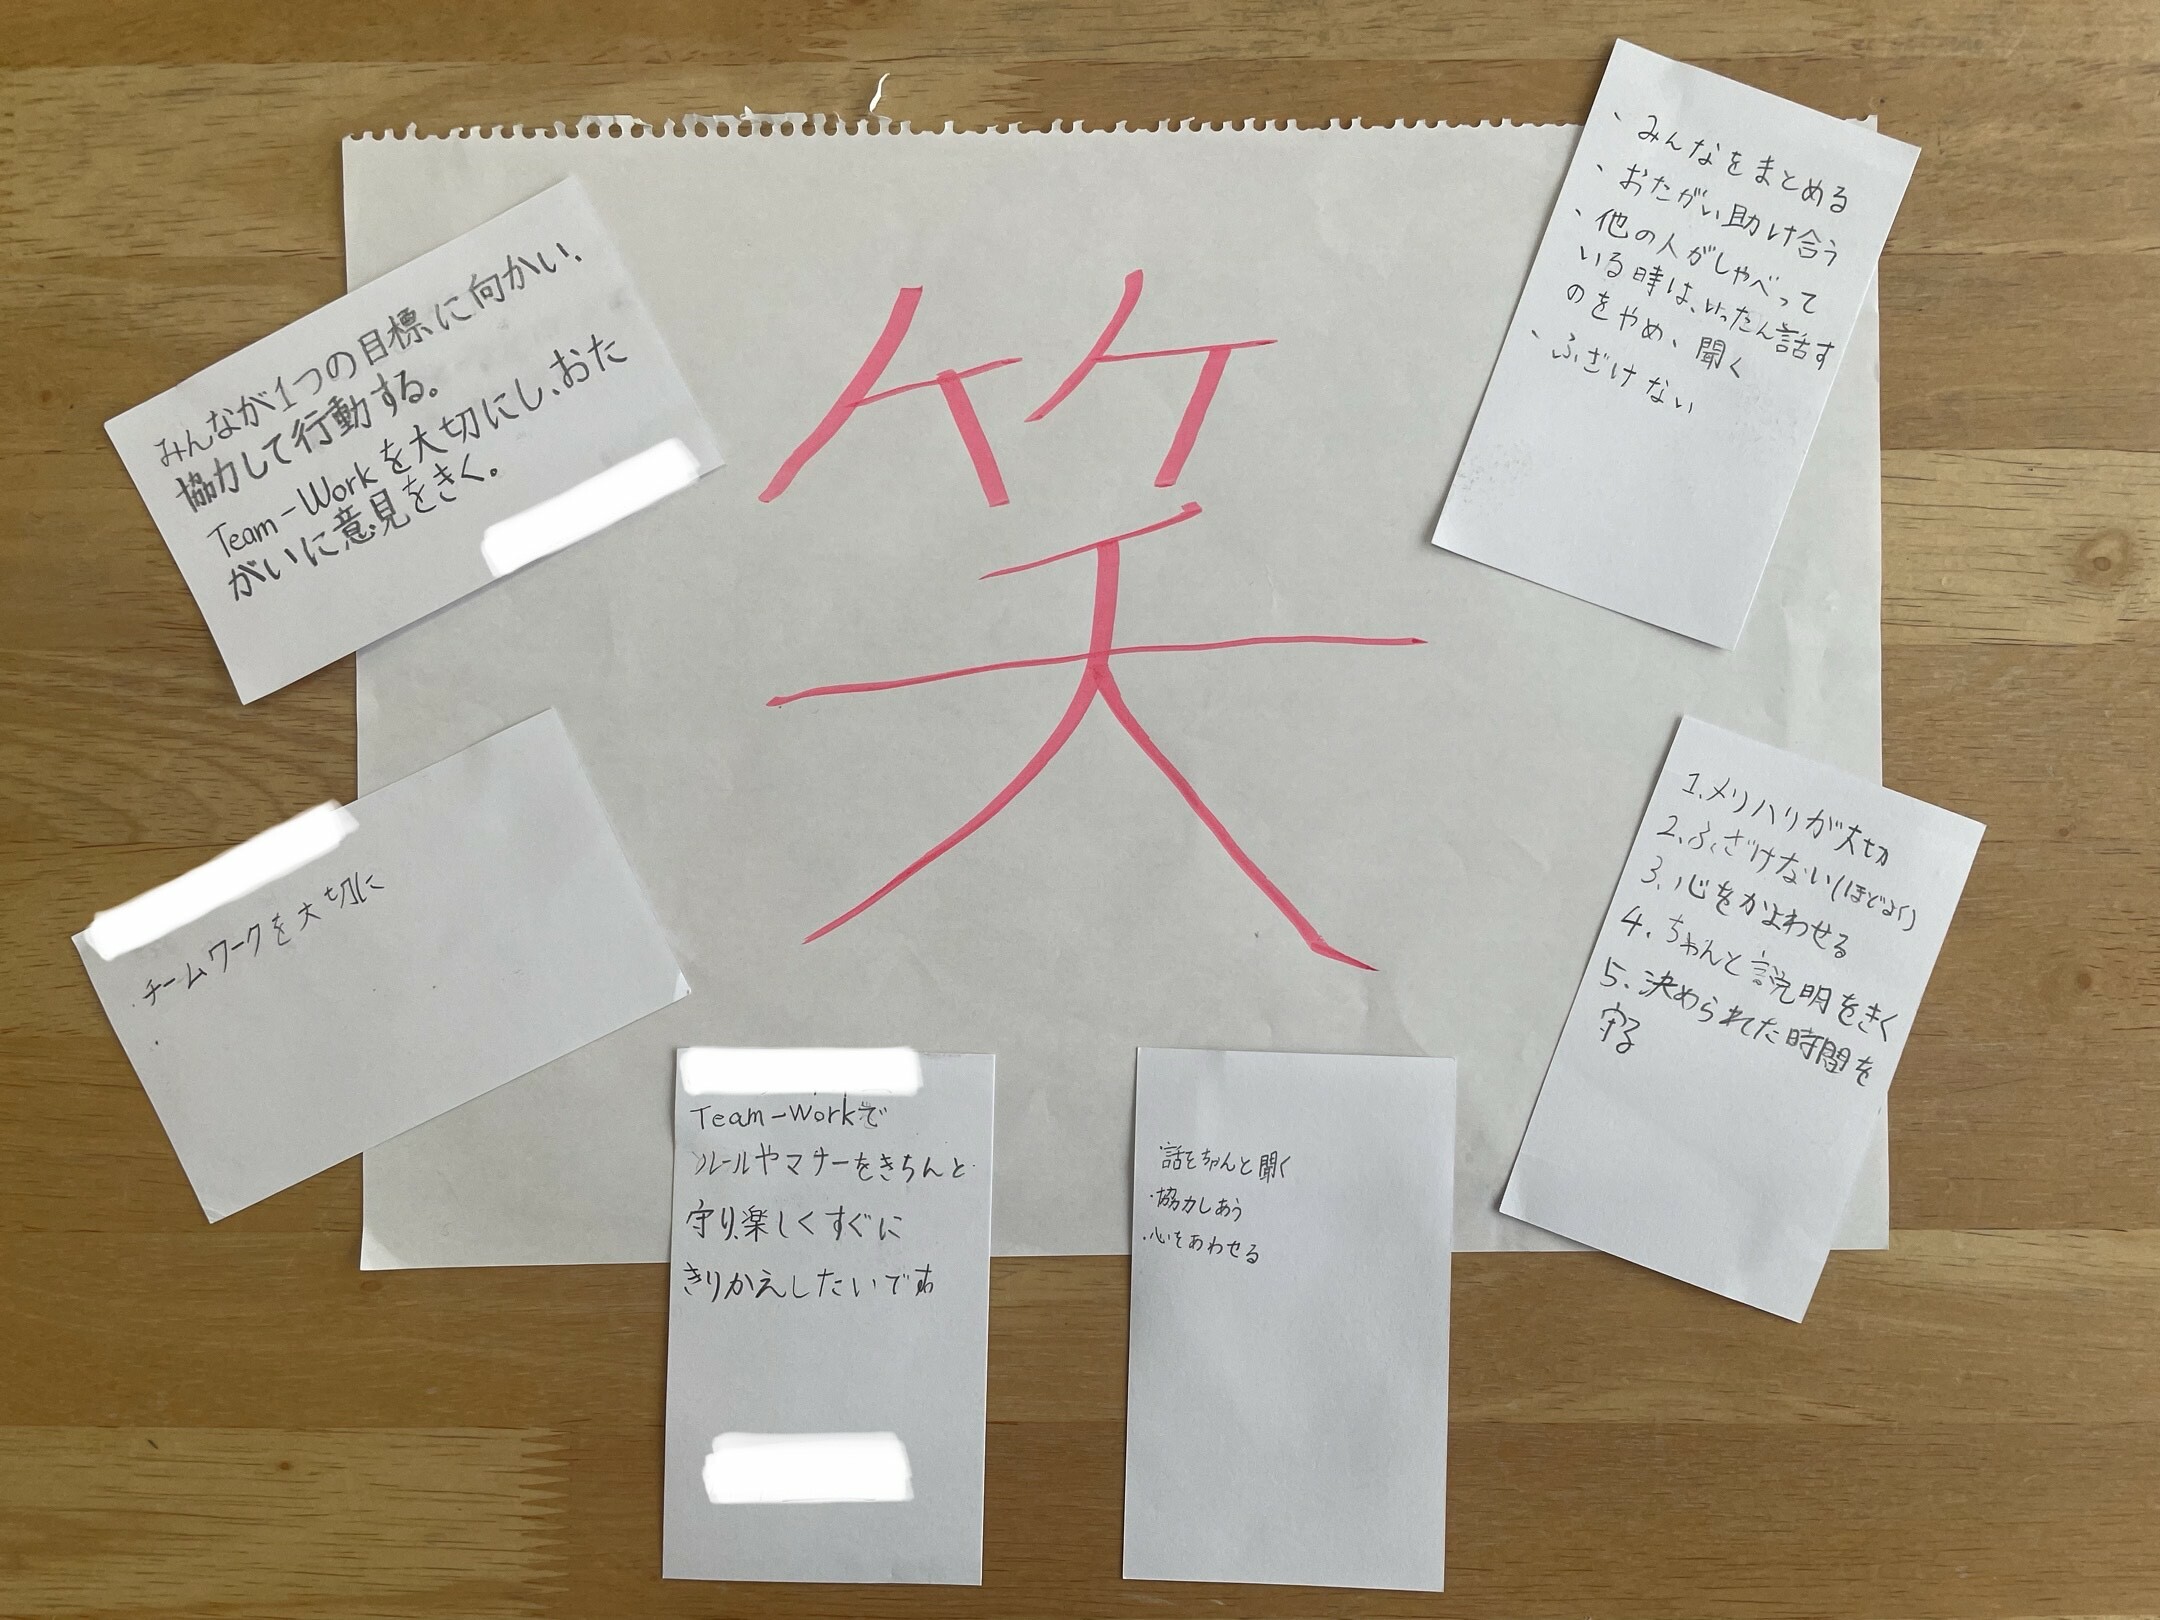 笑
みんなが1つの目標に向かい、
協力して行動する。
Team-Workを大切にし、おた
がいに意見をきく。
、みんなをまとめる
、おたがい助け合う
、他の人がしゃべって
いる時は、いったん話す
のをやめ、聞く
、ふざけない
・チームワークを大切に
1.メリハリが大切
2.ふざけない(ほどよく)
3.心をかよわせる
4.ちゃんと説明をきく
5.決められた時間を
守る
Team-Workで
ルールやマナーをきちんと
守り、楽しくすぐに
きりかえしたいです
・話をちゃんと聞く
・協力しあう
・心をあわせる